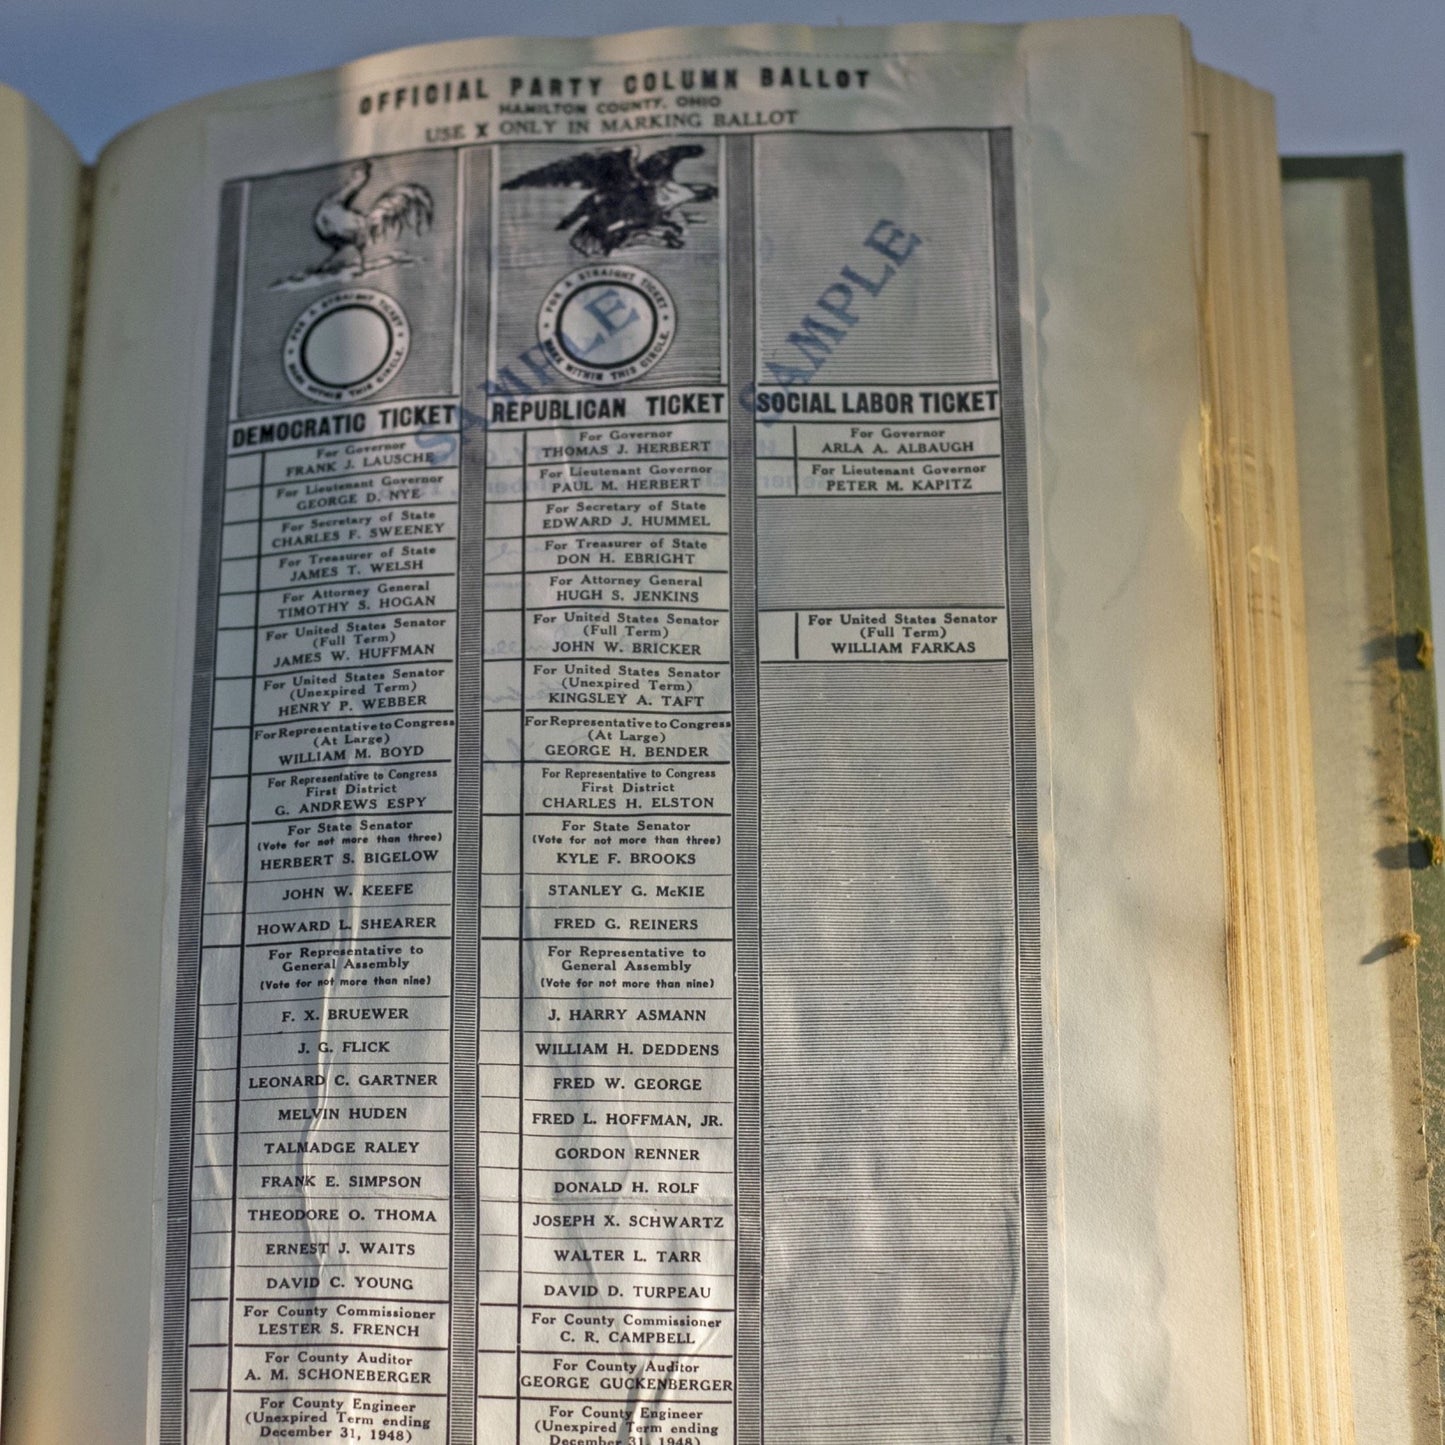 OFFICIAL PARTY COLUMN BALLOT
HAMILTON COUNTY, OHIO
USE X ONLY IN MARKING BALLOT
FOR A STRAIGHT TICKET
MARK WITHIN THIS CIRCLE.
DEMOCRATIC TICKET
For Governor
FRANK J. LAUSCHE
For Lieutenant Governor
GEORGE D. NYE
For Secretary of State
CHARLES F. SWEENEY
For Treasurer of State
JAMES T. WELSH
For Attorney General
TIMOTHY S. HOGAN
For United States Senator
(Full Term)
JAMES W. HUFFMAN
For United States Senator
(Unexpired Term)
HENRY P. WEBBER
For Representative to Congress
(At Large)
WILLIAM M. BOYD
For Representative to Congress
First District
G. ANDREWS ESPY
For State Senator
(Vote for not more than three)
HERBERT S. BIGELOW
JOHN W. KEEFE
HOWARD L. SHEARER
For Representative to
General Assembly
(Vote for not more than nine)
F. X. BRUEWER
J. G. FLICK
LEONARD C. GARTNER
MELVIN HUDEN
TALMADGE RALEY
FRANK E. SIMPSON
THEODORE O. THOMA
ERNEST J. WAITS
DAVID C. YOUNG
For County Commissioner
LESTER S. FRENCH
For County Auditor
A. M. SCHONEBERGER
For County Engineer
(Unexpired Term ending
December 31, 1948)
FOR A STRAIGHT TICKET
MARK WITHIN THIS CIRCLE.
SAMPLE
REPUBLICAN TICKET
For Governor
THOMAS J. HERBERT
For Lieutenant Governor
PAUL M. HERBERT
For Secretary of State
EDWARD J. HUMMEL
For Treasurer of State
DON H. EBRIGHT
For Attorney General
HUGH S. JENKINS
For United States Senator
(Full Term)
JOHN W. BRICKER
For United States Senator
(Unexpired Term)
KINGSLEY A. TAFT
For Representative to Congress
(At Large)
GEORGE H. BENDER
For Representative to Congress
First District
CHARLES H. ELSTON
For State Senator
(Vote for not more than three)
KYLE F. BROOKS
STANLEY G. McKIE
FRED G. REINERS
For Representative to
General Assembly
(Vote for not more than nine)
J. HARRY ASMANN
WILLIAM H. DEDDENS
FRED W. GEORGE
FRED L. HOFFMAN, JR.
GORDON RENNER
DONALD H. ROLF
JOSEPH X. SCHWARTZ
WALTER L. TARR
DAVID D. TURPEAU
For County Commissioner
C. R. CAMPBELL
For County Auditor
GEORGE GUCKENBERGER
For County Engineer
(Unexpired Term ending
December 31, 1948)
SAMPLE
SOCIAL LABOR TICKET
For Governor
ARLA A. ALBAUGH
For Lieutenant Governor
PETER M. KAPITZ
For United States Senator
(Full Term)
WILLIAM FARKAS